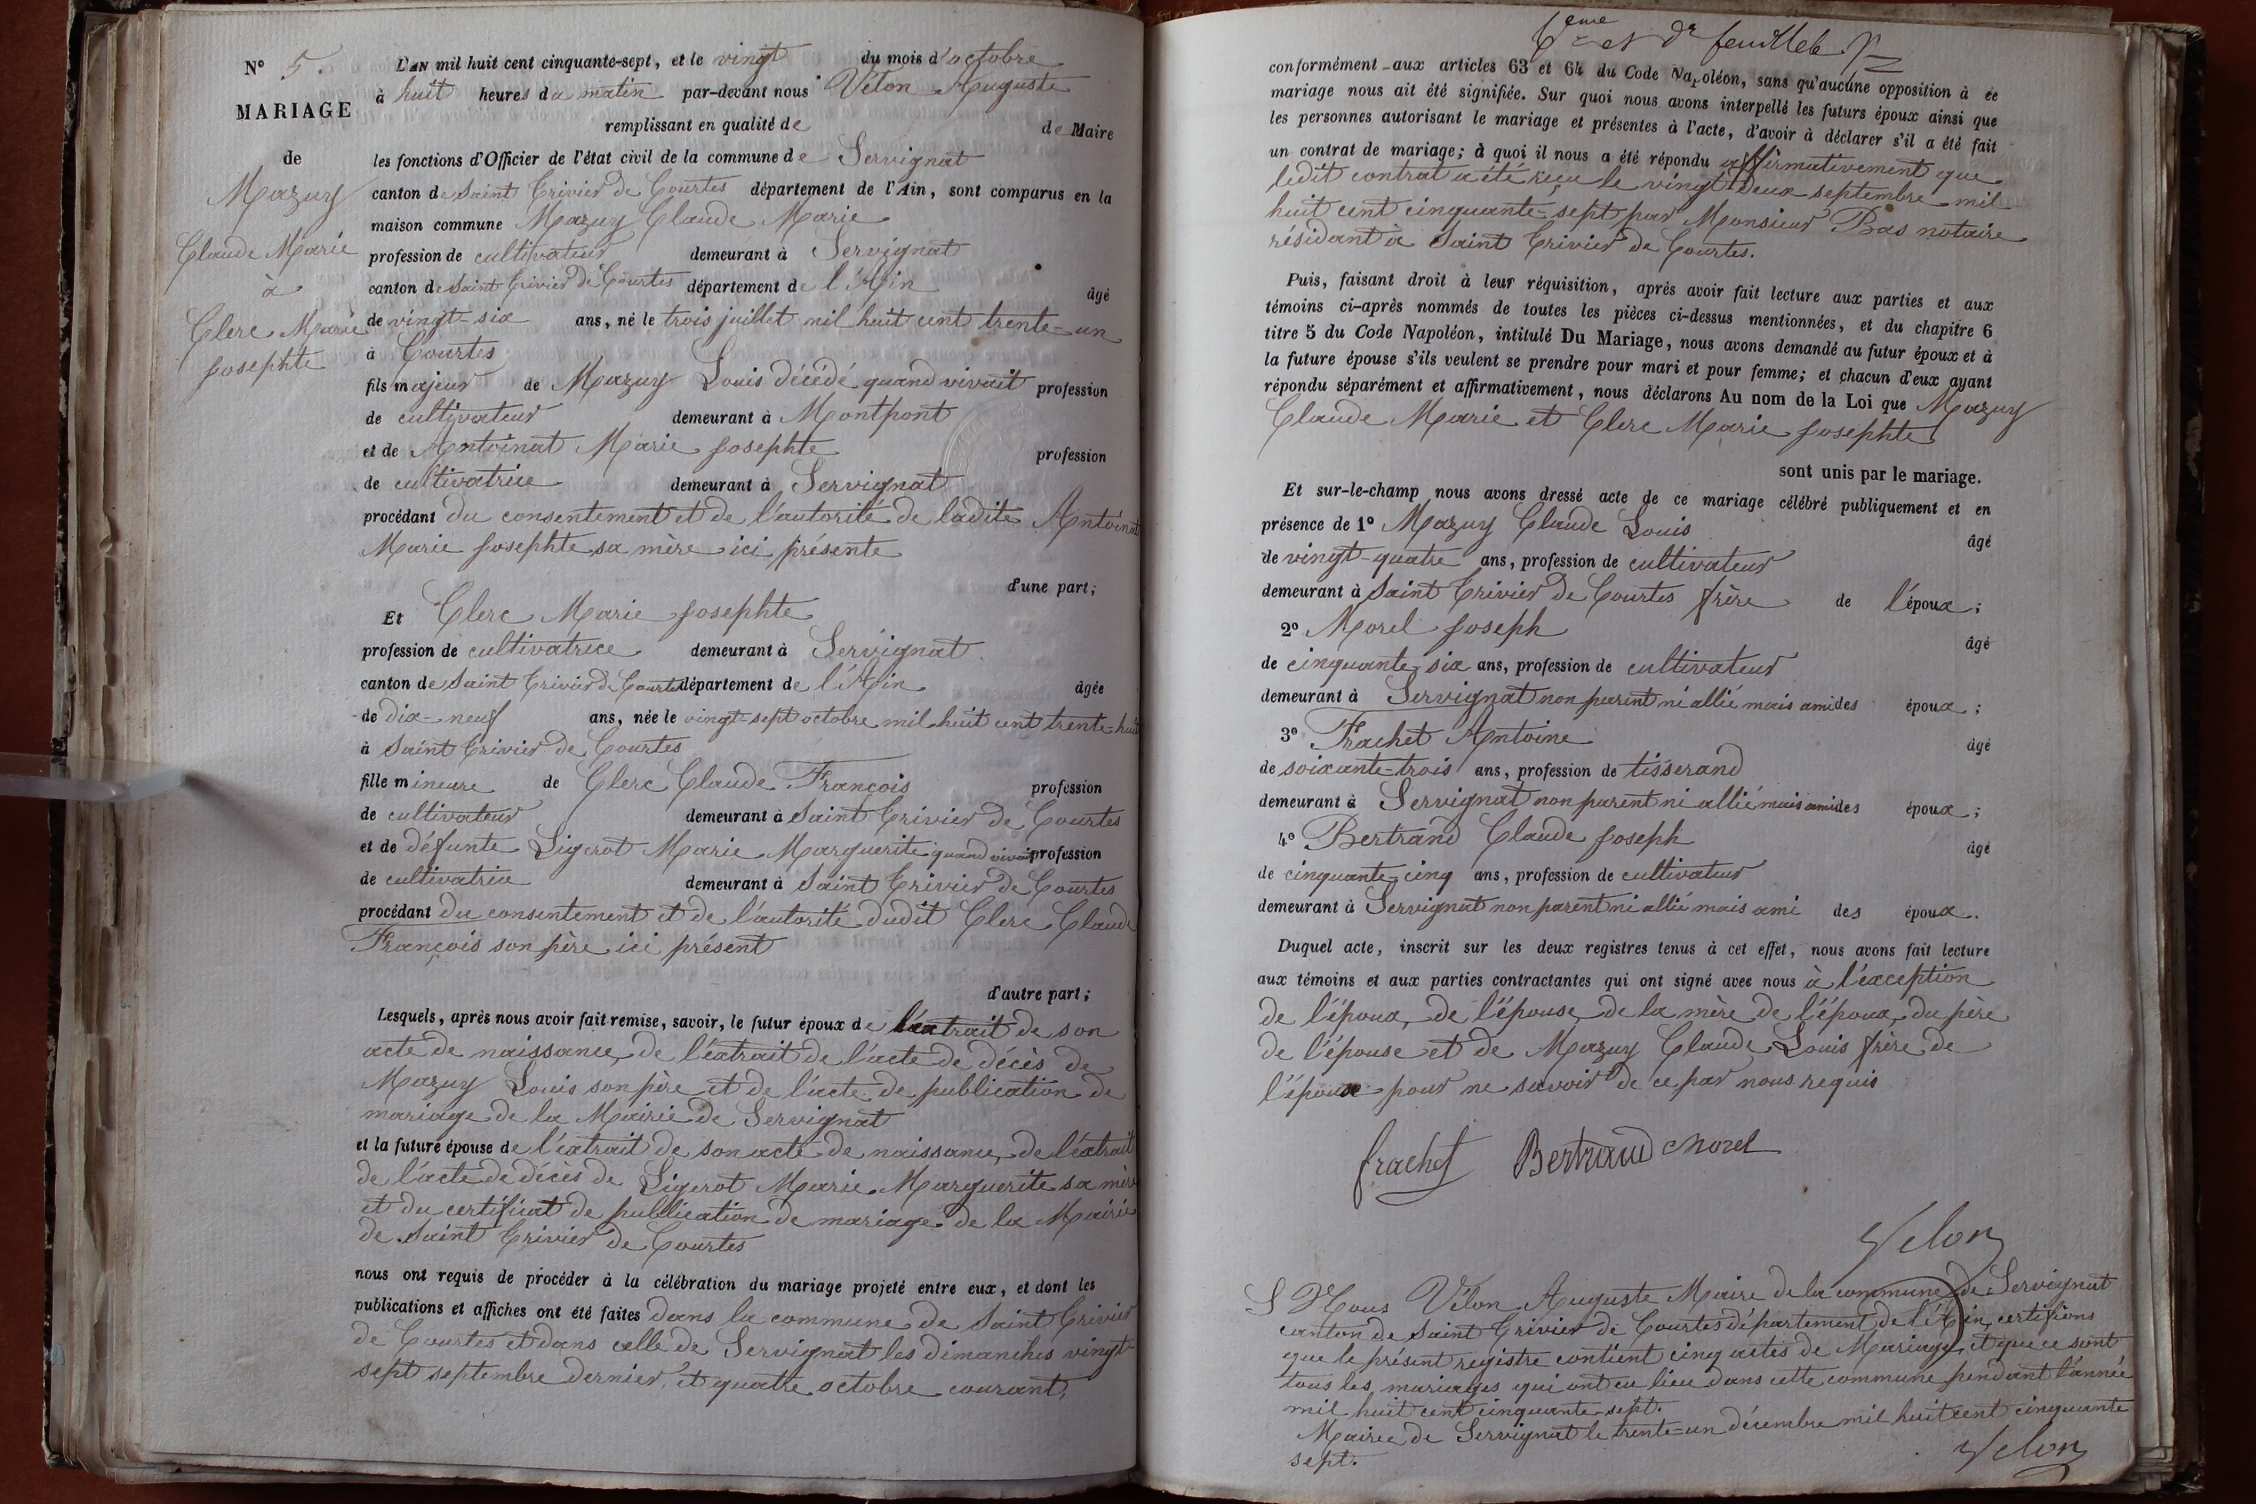 N° 5.
MARIAGE
de
Mazuy
Claude Marie
à
Clerc Marie
Josephte
L'AN mil huit cent cinquante-sept, et le vingt du mois d'octobre
à huit heures du matin par-devant nous Vélon Auguste
remplissant en qualité de de Maire
les fonctions d'Officier de l'état civil de la commune de Servignat
canton de Saint Trivier de Courtes département de l'Ain, sont comparus en la
maison commune Mazuy Claude Marie
profession de cultivateur demeurant à Servignat
canton de Saint Trivier de Courtes département de l'Ain âgé
de vingt-six ans, né le trois juillet mil huit cent trente-un
à Courtes
fils majeur de Mazuy Louis décédé quand vivait profession
de cultivateur demeurant à Montpont
et de Antoinat Marie Josephte profession
de cultivatrice demeurant à Servignat
procédant du consentement et de l'autorité de ladite Antoinat
Marie Josephte sa mère ici présente
d'une part;
Et Clerc Marie Josephte
profession de cultivatrice demeurant à Servignat
canton de Saint Trivier de Courtes département de l'Ain âgée
de dix-neuf ans, née le vingt-sept octobre mil huit cent trente-huit
à Saint Trivier de Courtes
fille mineure de Clerc Claude François profession
de cultivateur demeurant à Saint Trivier de Courtes
et de défunte Ligerot Marie Marguerite quand vivait profession
de cultivatrice demeurant à Saint Trivier de Courtes
procédant du consentement et de l'autorité dudit Clerc Claude
François son père ici présent
d'autre part;
Lesquels, après nous avoir fait remise, savoir, le futur époux de l'extrait de son
acte de naissance, de l'extrait de l'acte de décès de
Mazuy Louis son père et de l'acte de publication de
mariage de la Mairie de Servignat
et la future épouse de l'extrait de son acte de naissance, de l'extrait
de l'acte de décès de Ligerot Marie Marguerite sa mère
et du certificat de publication de mariage de la Mairie
de Saint Trivier de Courtes
nous ont requis de procéder à la célébration du mariage projeté entre eux, et dont les
publications et affiches ont été faites dans la commune de Saint Trivier
de Courtes et dans celle de Servignat les dimanches vingt-
sept septembre dernier, et quatre octobre courant,
6eme et dr feuillet
conformément aux articles 63 et 64 du Code Napoléon, sans qu'aucune opposition à ce
mariage nous ait été signifiée. Sur quoi nous avons interpellé les futurs époux ainsi que
les personnes autorisant le mariage et présentes à l'acte, d'avoir à déclarer s'il a été fait
un contrat de mariage; à quoi il nous a été répondu affirmativement que
ledit contrat a été reçu le vingt deux septembre mil
huit cent cinquante-sept par Monsieur Bas notaire
résidant à Saint Trivier de Courtes.
Puis, faisant droit à leur réquisition, après avoir fait lecture aux parties et aux
témoins ci-après nommés de toutes les pièces ci-dessus mentionnées, et du chapitre 6
titre 5 du Code Napoléon, intitulé Du Mariage, nous avons demandé au futur époux et à
la future épouse s'ils veulent se prendre pour mari et pour femme; et chacun d'eux ayant
répondu séparément et affirmativement, nous déclarons Au nom de la Loi que Mazuy
Claude Marie et Clerc Marie Josephte
sont unis par le mariage.
Et sur-le-champ nous avons dressé acte de ce mariage célébré publiquement et en
présence de 1° Mazuy Claude Louis âgé
de vingt-quatre ans, profession de cultivateur
demeurant à Saint Trivier de Courtes frère de l'époux;
2° Morel Joseph âgé
de cinquante six ans, profession de cultivateur
demeurant à Servignat non parent ni allié mais ami des époux;
3° Frachet Antoine âgé
de soixante-trois ans, profession de tisserand
demeurant à Servignat non parent ni allié mais ami des époux;
4° Bertrand Claude Joseph âgé
de cinquante-cinq ans, profession de cultivateur
demeurant à Servignat non parent ni allié mais ami des époux.
Duquel acte, inscrit sur les deux registres tenus à cet effet, nous avons fait lecture
aux témoins et aux parties contractantes qui ont signé avec nous à l'exception
de l'époux, de l'épouse, de la mère de l'époux, du père
de l'épouse et de Mazuy Claude Louis frère de
l'époux pour ne savoir de ce par nous requis
frachet Bertrand Morel
Velon
Nous Vélon Auguste Maire de la commune de Servignat
canton de Saint Trivier de Courtes département de l'Ain, certifions
que le présent registre contient cinq actes de Mariage, et que ce sont
tous les mariages qui ont eu lieu dans cette commune pendant l'année
mil huit cent cinquante-sept.
Mairie de Servignat le trente-un décembre mil huit cent cinquante
sept.
Velon